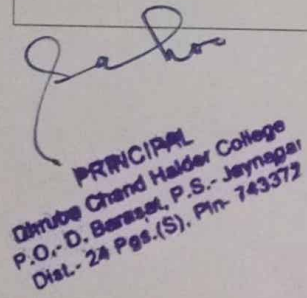 PRINCIPAL
Dhruba Chand Halder College
P.O.- D. Barasat, P.S.- Jaynagar
Dist.- 24 Pgs.(S), Pin- 743372